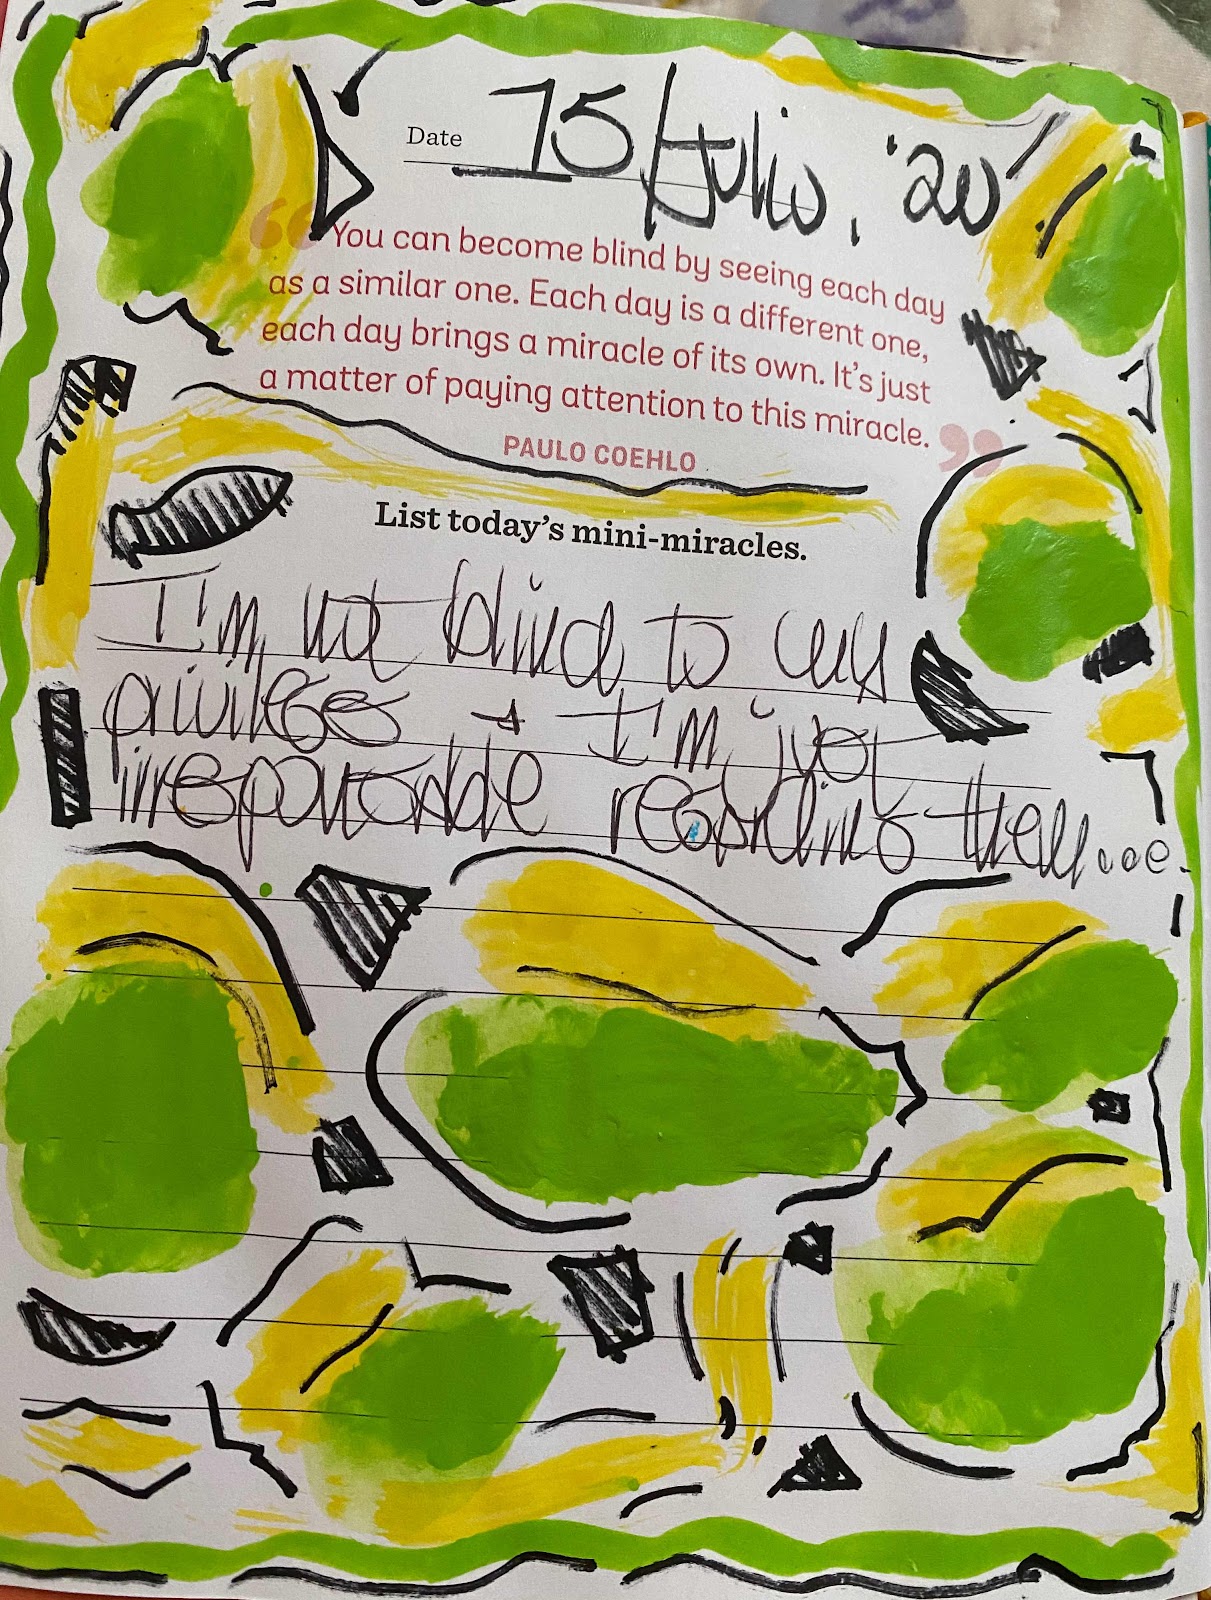 Date 15/Julio, '20
“You can become blind by seeing each day
as a similar one. Each day is a different one,
each day brings a miracle of its own. It's just
a matter of paying attention to this miracle.”
PAULO COEHLO
List today's mini-miracles.
I'm not blind to
privileges & I'm just
irresponsable regarding them...